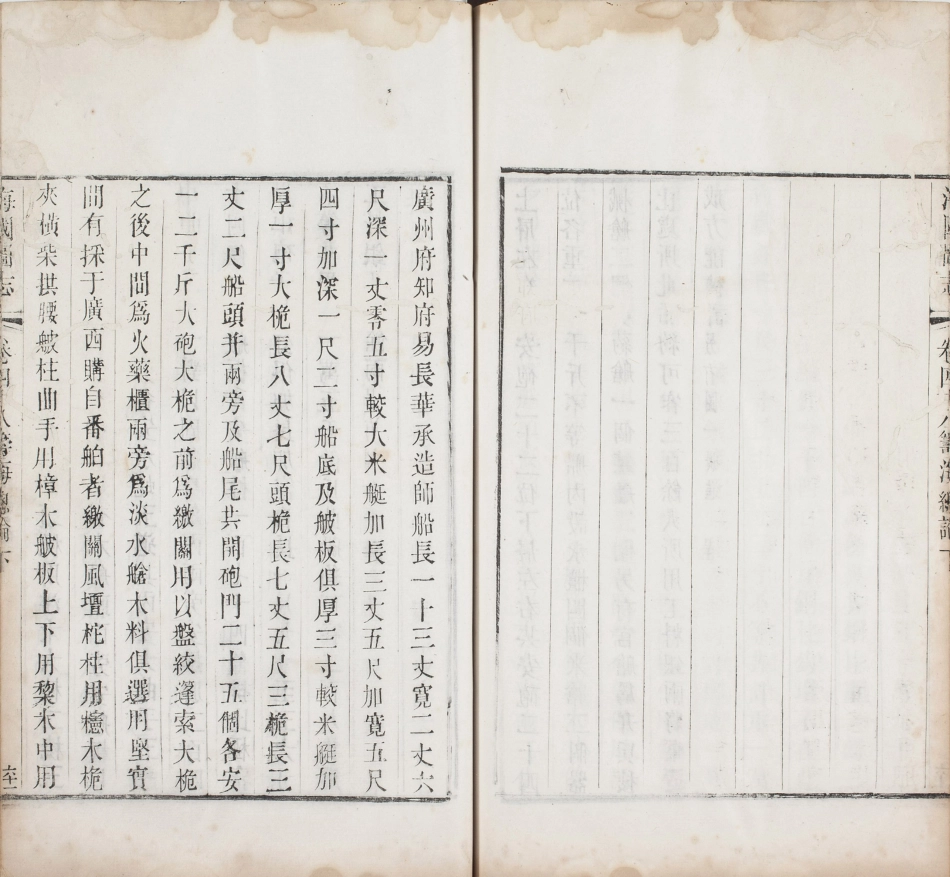 廣州府知府易長華承造師船長一十三丈寬二丈六
尺深一丈零五寸較大米艇加長三丈五尺加寬五尺
四寸加深一尺二寸船底及舨板俱厚三寸較米艇加
厚一寸大桅長八丈七尺頭桅長七丈五尺三桅長三
丈二尺船頭并兩旁及船尾共開砲門二十五個各安
一二千斤大砲大桅之前爲繳關用以盤絞篷索大桅
之後中間爲火藥櫃兩旁爲淡水艙木料俱選用堅實
間有採于廣西購自番舶者繳關風壇柁柱用櫶木桅
夾橫柴拱腰舨柱曲手用樟木舨板上下用黎木中用
海國圖志
籌海總論下